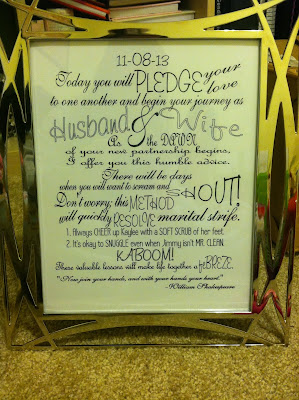 11-08-13
Today you will PLEDGE your love
to one another and begin your journey as
Husband & Wife
As the DAWN
of your new partnership begins,
I offer you this humble advice.
There will be days
when you will want to scream and SHOUT!
Don't worry; this METHOD
will quickly RESOLVE marital strife.
1. Always CHEER up Kaylee with a SOFT SCRUB of her feet.
2. It's okay to SNUGGLE even when Jimmy isn't MR. CLEAN.
KABOOM!
These valuable lessons will make life together a feBREZE.
"Now join your hands, and with your hands your heart."
-William Shakespeare